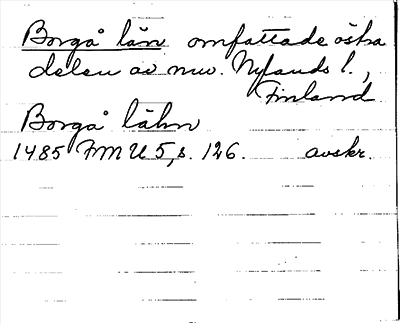 Borgå län omfattade östra
delen av nuv. Nylands l.,
Finland
Borgå lähn
1485 FMU 5, s. 126. avskr.